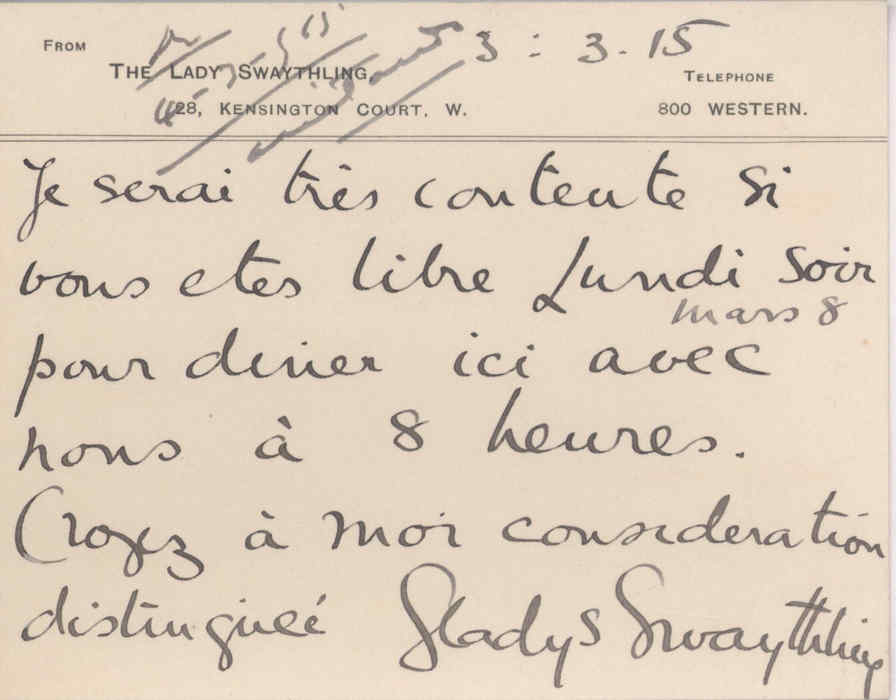 FROM
THE LADY SWAYTHLING,
3 : 3. 15
TELEPHONE
28, KENSINGTON COURT, W.
800 WESTERN.
Je serai très contente si
vous etes libre Lundi soir
mars 8
pour diner ici avec
nous à 8 heures.
Croyez à moi consideration
distinguée Gladys Swaythling